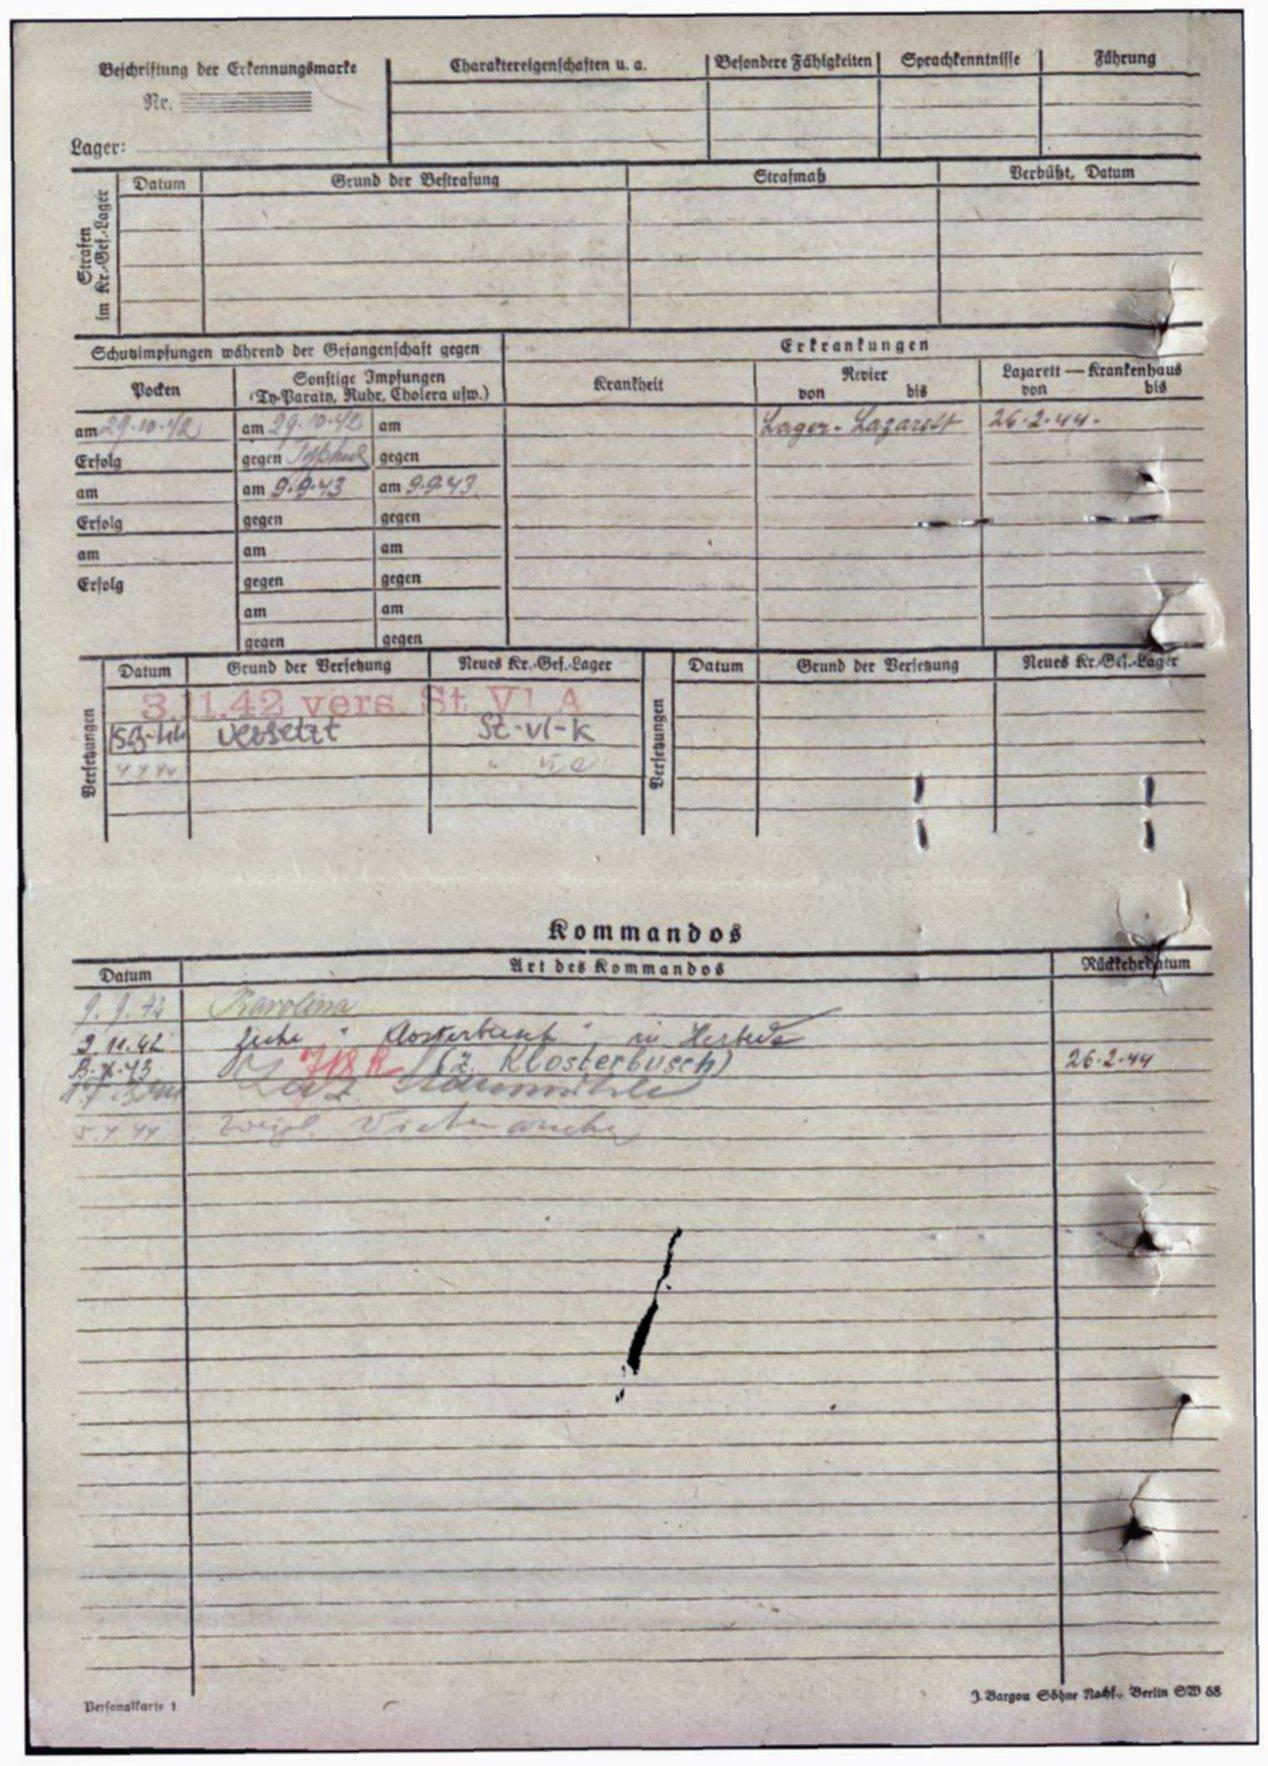 Beschriftung der Erkennungsmarke
Nr.
Lager:
Charaktereigenschaften u. a. Besondere Fähigkeiten Sprachkenntnisse Führung
Strafen im Kr.-Gef.-Lager
Datum Grund der Bestrafung Strafmaß Verbüßt, Datum
Schutzimpfungen während der Gefangenschaft gegen
Erkrankungen
Pocken Sonstige Impfungen (Ty-Paraty, Ruhr, Cholera usw.)
Krankheit Revier von bis Lazarett — Krankenhaus von bis
am 29.10.42 am 29.10.42 am Lager-Lazarett 26.2.44.
Erfolg gegen Typhus gegen
am am 9.9.43 am 9.9.43.
Erfolg gegen gegen
am am am
Erfolg gegen gegen
am am
gegen gegen
Versetzungen
Datum Grund der Versetzung Neues Kr.-Gef.-Lager
3.11.42 vers. St VI A
versetzt St-VI-K
4.4.44 " VI a
Versetzungen
Datum Grund der Versetzung Neues Kr.-Gef.-Lager
Kommandos
Datum Art des Kommandos Rückkehrdatum
9.9.42 Karolina
3.11.42 Zeche " Klosterbusch " in Herbede
718 R (Z. Klosterbusch) 26.2.44
Laz.
5.4.44
Personalkarte 1
J. Bargou Söhne Nachf., Berlin SW 68